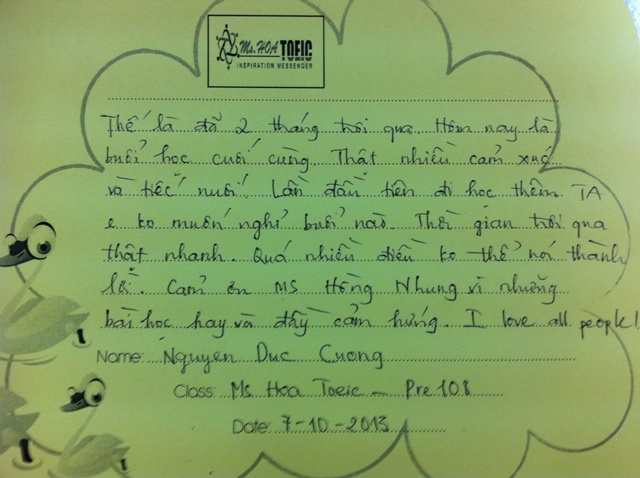 Ms. HOA TOEIC
INSPIRATION MESSENGER
Thế là đã 2 tháng trôi qua. Hôm nay là
buổi học cuối cùng. Thật nhiều cảm xúc
và tiếc nuối. Lần đầu tiên đi học thêm TA
e ko muốn nghỉ buổi nào. Thời gian trôi qua
thật nhanh. Quá nhiều điều ko thể nói thành
lời. Cảm ơn MS Hồng Nhung vì những
bài học hay và đầy cảm hứng. I love all people!
Name: Nguyen Duc Cuong
Class: Ms Hoa Toeic - Pre 108
Date: 7-10-2013